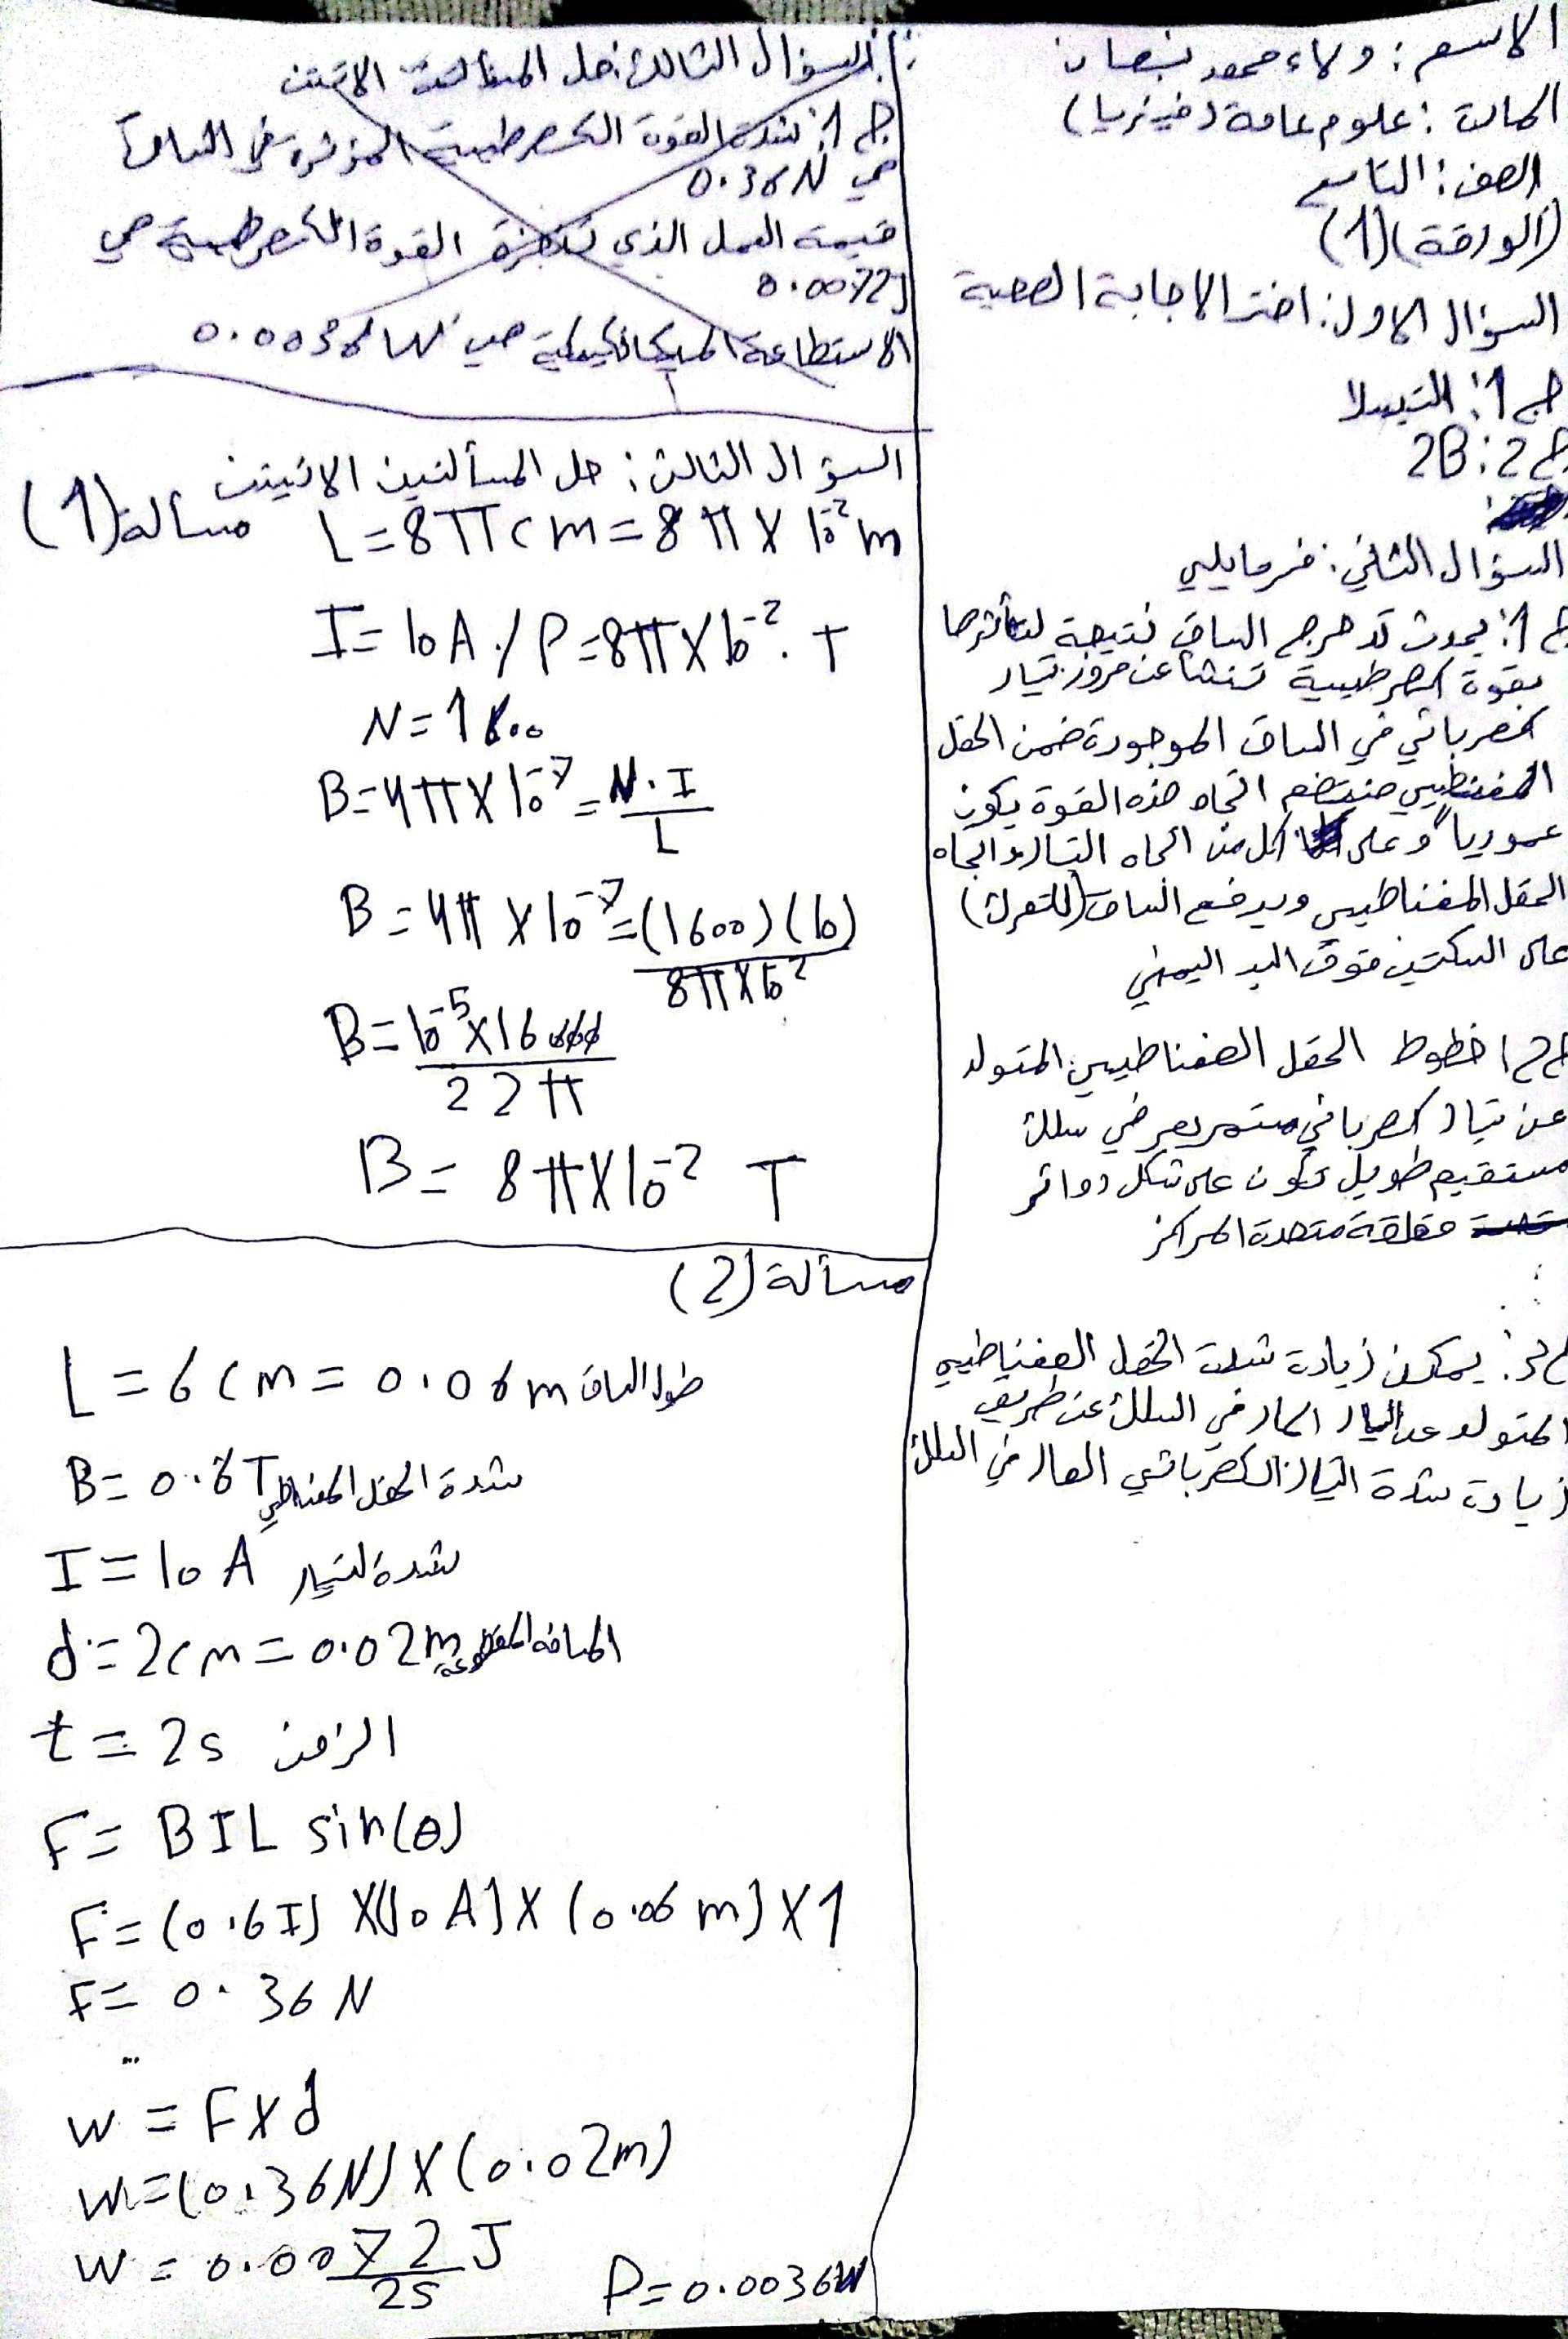 الاسم : ولاء محمود شعبان
المادة : علوم عامة (فيزياء)
الصف : التاسع
(الورقة) (1)
السؤال الاول : اختر الاجابة الصحية
ج1 : التيسلا
ج2 : 2B
السؤال الثاني : فسر مايلي
ج1 : يحدث تدحرج الساق نتيجة لتأثرها
بقوة كهرطيسية تنشأ عن مرور تيار
كهربائي في الساق الموجودة ضمن الحقل
المغنطيسي اتجاه هذه القوة يكون
عموديا" و على كل من اتجاه التيار واتجاه
الحقل المغناطيسي ويدفع الساق (للتحرك)
على السكتين فوق اليد اليمنى
ج2 ) خطوط الحقل المغناطيسي المتولد
عن تيار كهربائي مستمر يمر في سلك
مستقيم طويل تكون على شكل دوائر
مغلقة متحدة المراكز
ج3 : يمكن زيادة شدة الحقل المغناطيسي
المتولد عن التيار المار في السلك عن طريق
زيادة شدة التيار الكهربائي المار في السلك
السؤال الثالث : حل المسألتين الاتيتين
ج1 : شدة القوة الكهرطيسية المؤثرة في الساق
هي 0.36N
قيمة العمل الذي تنجزه القوة الكهرطيسية هي
0.0072J
الاستطاعة الميكانيكية هي 0.0036W
السؤال الثالث : حل المسألتين الاتيتين
مسألة (1)
L = 8πcm = 8π x 10⁻² m
I = 10A / P = 8π x 10⁻² . T
N = 1600
B = 4π x 10⁻⁷ = N.I / L
B = 4π x 10⁻⁷ = (1600) (10) / 8π x 10⁻²
B = 10⁻⁵ x 16000 / 22π
B = 8π x 10⁻² T
مسألة (2)
L = 6cm = 0.06m طول الساق
B = 0.6T شدة الحقل المغناطيسي
I = 10A شدة التيار
d = 2cm = 0.02m المسافة المقطوعة
t = 2s الزمن
F = BIL sin(θ)
F = (0.6I) x (10A) x (0.06m) x 1
F = 0.36N
w = F x d
w = (0.36N) x (0.02m)
w = 0.0072J / 2s
P = 0.0036W